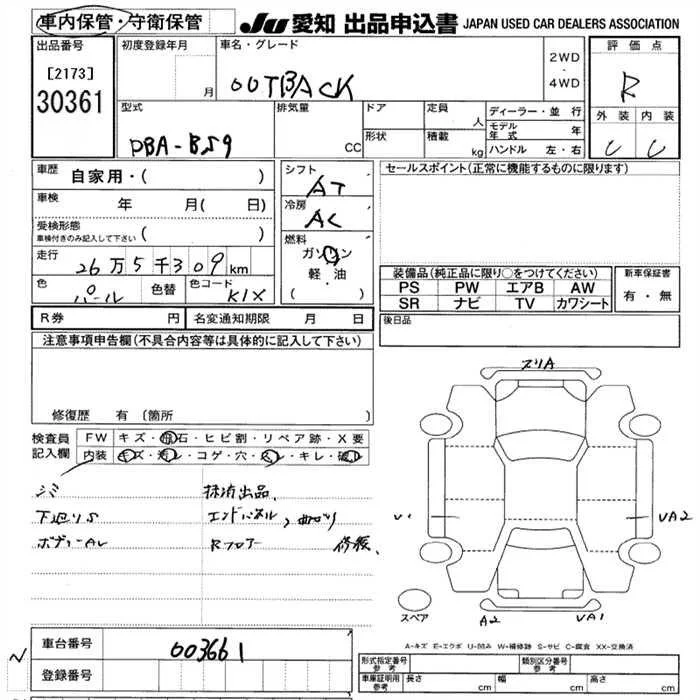 車内保管・守衛保管
JU 愛知 出品申込書 JAPAN USED CAR DEALERS ASSOCIATION
出品番号
[2173]
30361
初度登録年月
月
車名・グレード
OUTBACK
2WD
・
4WD
評価点
R
外装 内装
C C
型式
DBA-BS9
排気量
CC
ドア
形状
定員
人
積載
kg
ディーラー・並行
モデル年式 年
ハンドル 左・右
車歴
自家用・( )
車検
年 月( 日)
受検形態
車検付きのみ記入して下さい ( )
走行
26万5千309km
色
パール
色替
色コード
K1X
シフト
AT
冷房
AC
燃料
ガソリン
軽油
( )
セールスポイント(正常に機能するものに限ります)
装備品(純正品に限り○をつけてください)
PS PW エアB AW
SR ナビ TV カワシート
新車保証書
有・無
R券 円
名変通知期限 月 日
後日品
注意事項申告欄(不具合内容等は具体的に記入して下さい)
修復歴 有 〔箇所
検査員記入欄
FW キズ・飛石・ヒビ割・リペア跡・X要
内装 キズ・汚レ・コゲ・穴・スレ・キレ・破レ
シミ
エンドパネル
Rフロアー 修復
スリA
VA2
A2
VA1
スペア
A-キズ E-エクボ U-凹み W-補修跡 S-サビ C-腐食 XX-交換済
車台番号
003661
登録番号
形式指定番号
参考
類別区分番号
参考
車庫証明用
参考
長さ cm
幅 cm
高さ cm